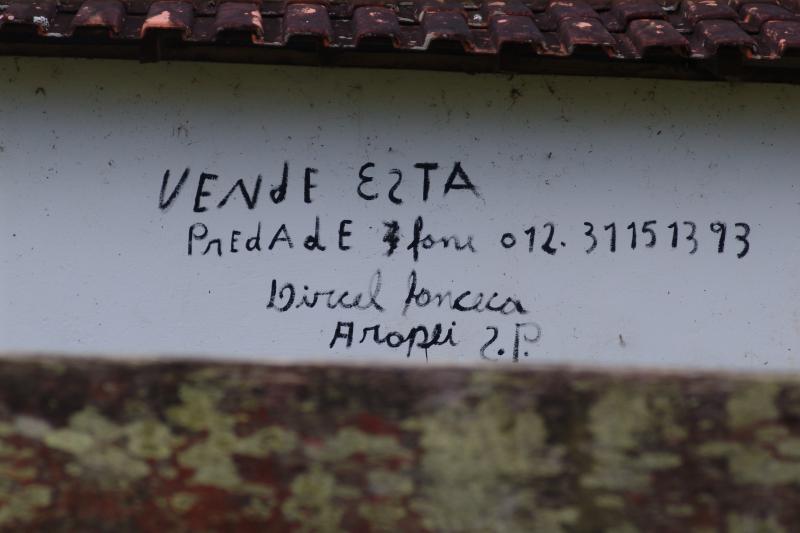 VENdE ESTA
PrEdAdE fone 012. 31151393
Dircel fonceca
Aropei S.P.